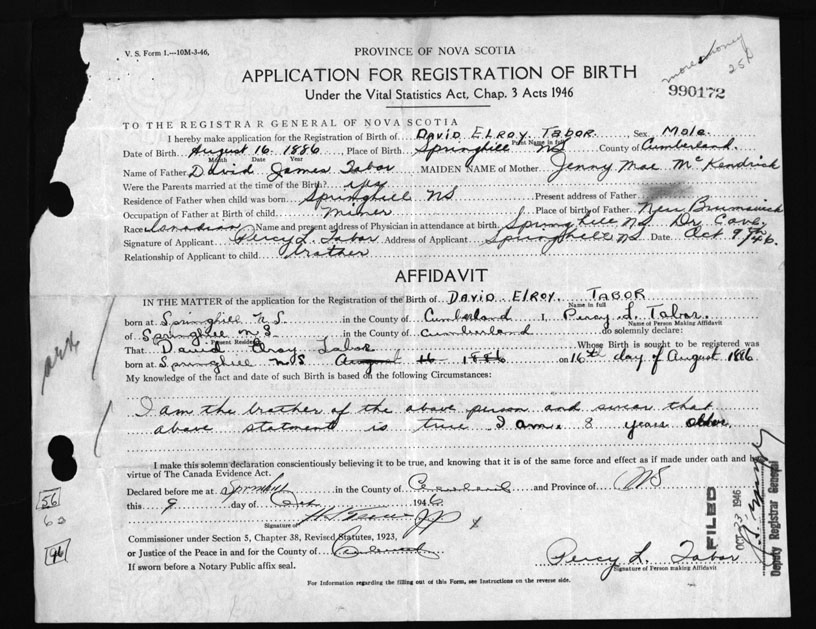 V. S. Form 1.—10M-3-46.
PROVINCE OF NOVA SCOTIA
APPLICATION FOR REGISTRATION OF BIRTH
Under the Vital Statistics Act, Chap. 3 Acts 1946
more money
25¢
990172
TO THE REGISTRAR GENERAL OF NOVA SCOTIA
I hereby make application for the Registration of Birth of DAVID ELROY TABOR Sex Male
Print Name in full
Date of Birth August 16 1886 Place of Birth Springhill NS County of Cumberland
Month Date Year
Name of Father David James Tabor MAIDEN NAME of Mother Jenny Mae McKendrick
Were the Parents married at the time of the Birth? yes
Residence of Father when child was born Springhill NS Present address of Father
Occupation of Father at Birth of child Miner Place of birth of Father New Brunswick
Race Canadian Name and present address of Physician in attendance at birth Spring Hill NS Dr Cove
Signature of Applicant Percy L. Tabor Address of Applicant Springhill NS Date Oct 9th/46.
Relationship of Applicant to child brother
AFFIDAVIT
IN THE MATTER of the application for the Registration of the Birth of DAVID ElRoy TABOR
Name in full
born at Springhill N S. in the County of Cumberland I, Percy L. Tabor.
Name of Person Making Affidavit
of Springhill N S in the County of Cumberland do solemnly declare:
Present Residence
That David Elroy Tabor Whose Birth is sought to be registered was
born at Springhill N S August 16 1886 on 16th day of August 1886
My knowledge of the fact and date of such Birth is based on the following Circumstances:
I am the brother of the above person and swear that
above statment is true I am 8 years older.
I make this solemn declaration conscientiously believing it to be true, and knowing that it is of the same force and effect as if made under oath and by
virtue of The Canada Evidence Act.
Declared before me at Springhill in the County of Cumberland and Province of NS
this 9 day of Oct 1946
Signature of
Commissioner under Section 5, Chapter 38, Revised Statutes, 1923,
or Justice of the Peace in and for the County of Cumberland
If sworn before a Notary Public affix seal.
Percy L. Tabor
Signature of Person making Affidavit
For Information regarding the filling out of this Form, see Instructions on the reverse side.
FILED
OCT 23 1946
Deputy Registrar General
56
62
96